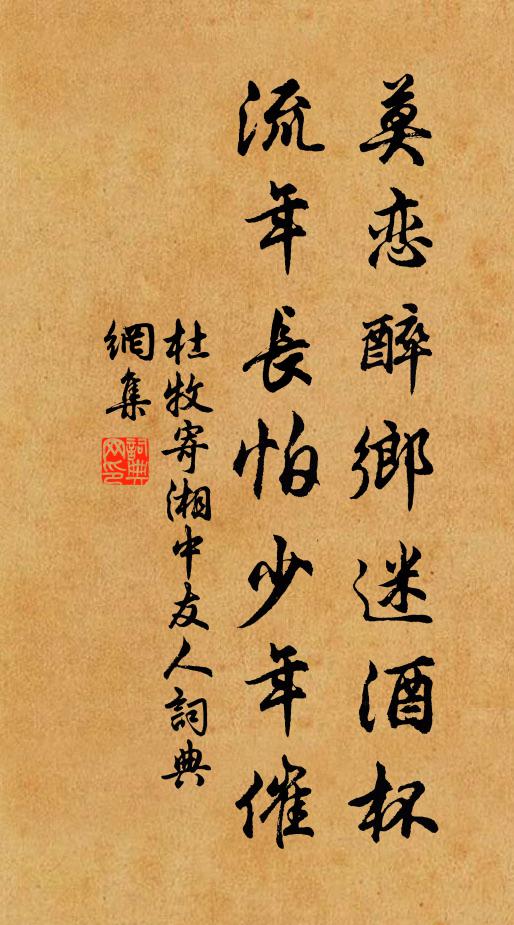 莫恋醉鄉迷酒杯
流年長怕少年催
杜牧寄湘中友人詞典
網集
詞典
网印